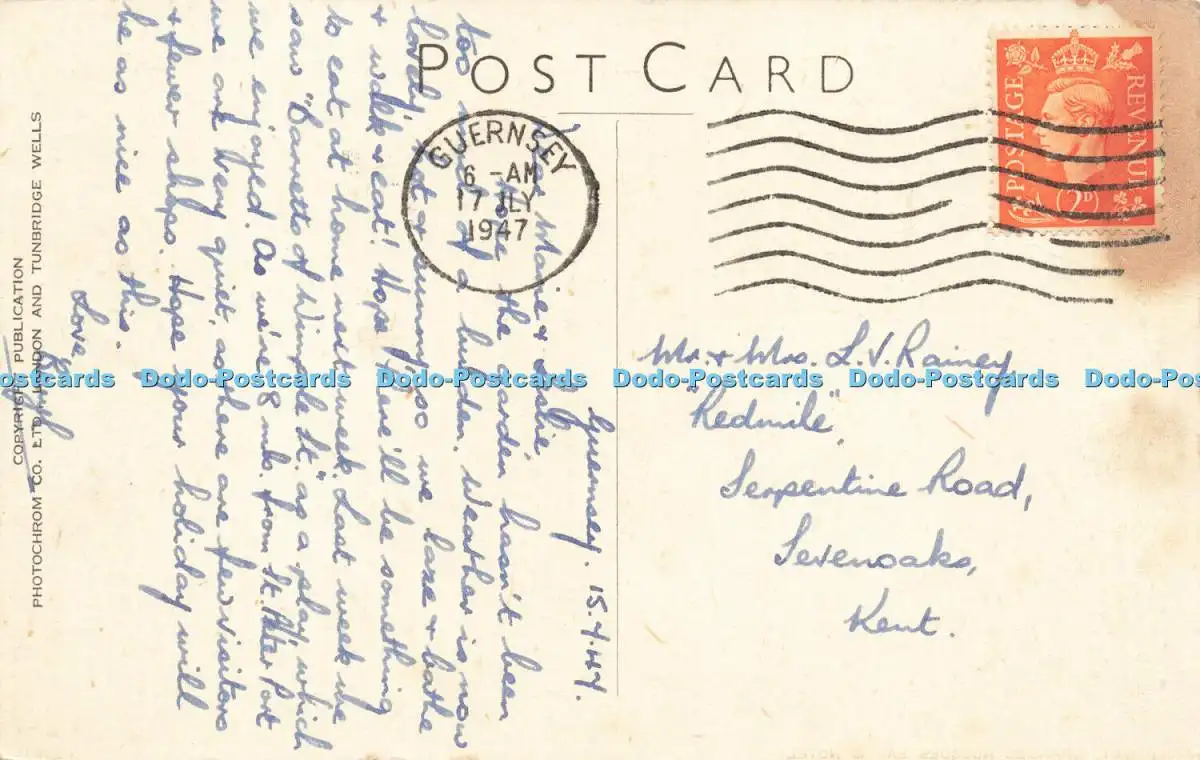 POST CARD
GUERNSEY
6 - AM
17 JLY
1947
POSTAGE
REVENUE
2D
Guernsey. 15.7.47.
Dear Marie &
Hope the garden hasn't been
too much of a burden. Weather is now
lovely, hot & sunny, so we laze & bathe
& walk & eat! Hope there'll be something
to eat at home next week. Last week we
saw "Barretts of Wimpole St." as a play, which
we enjoyed. As we're 8 mls. from St. Peter Port
we are very quiet, as there are few visitors
& fewer shops. Hope your holiday will
be as nice as this.
Love
Mr. & Mrs. L.V. Rainey,
"Redmile",
Serpentine Road,
Sevenoaks,
Kent.
COPYRIGHT PUBLICATION
PHOTOCHROM CO. LTD. LONDON AND TUNBRIDGE WELLS
Dodo-Postcards Dodo-Postcards Dodo-Postcards Dodo-Postcards Dodo-Postcards